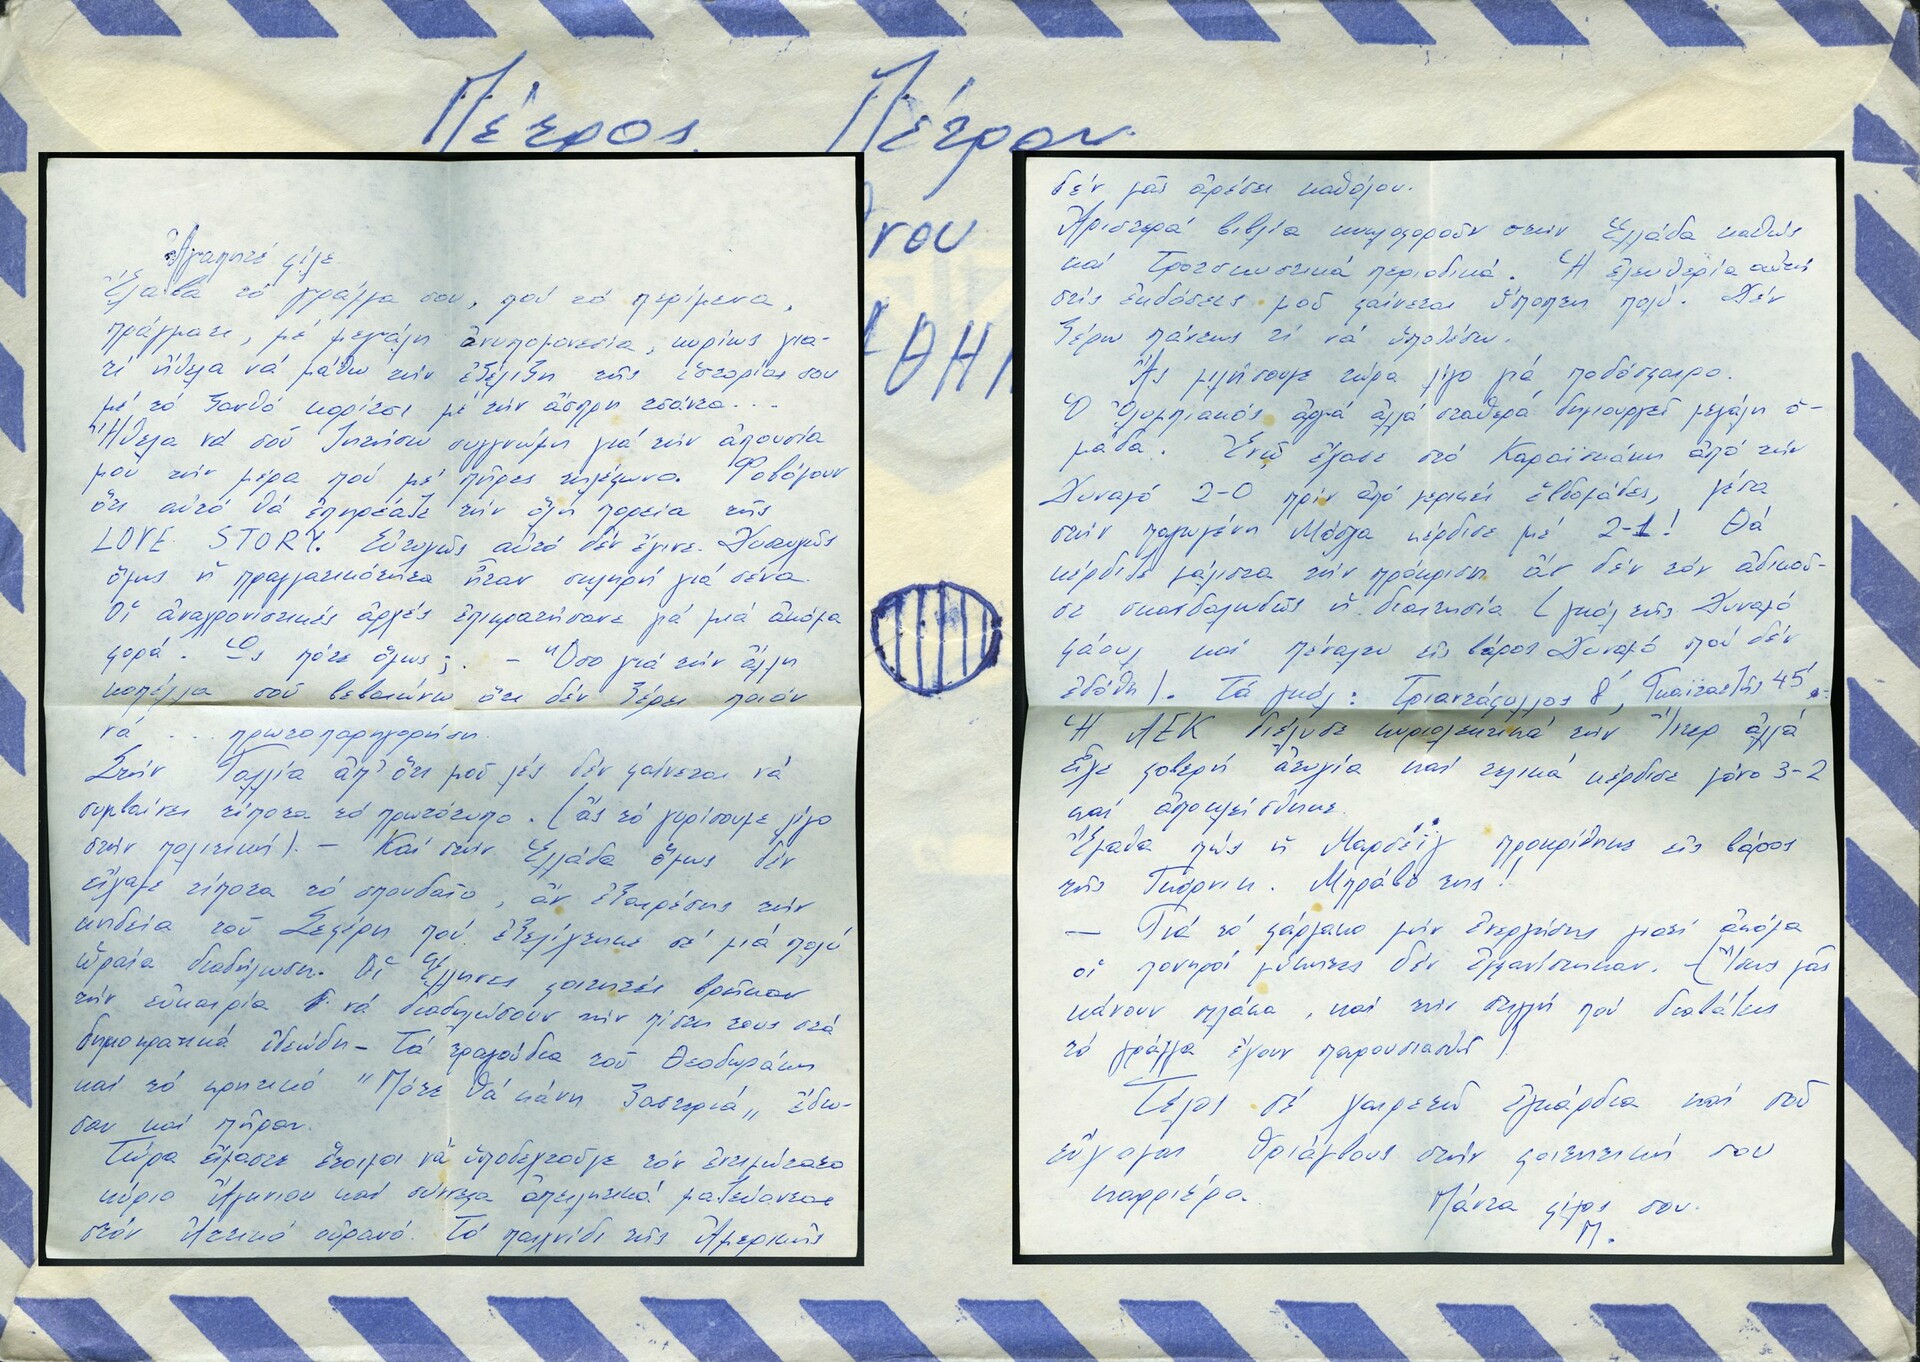 Πέτρος Πέτρου
νου
ΑΘΗ
Ἀγαπητέ φίλε
Ἔλαβα τό γράμμα σου, πού τό περίμενα,
πράγματι, μέ μεγάλη ἀνυπομονεσία, κυρίως για-
τί ἤθελα νά μάθω τήν ἐξέλιξη τῆς ἱστορίας σου
μέ τό ξανθό κορίτσι μέ τήν ἄσπρη τσάντα...
Ἤθελα νά σοῦ ζητήσω συγγνώμη γιά τήν ἀπουσία
μου τήν μέρα πού μέ πῆρες τηλέφωνο. Φοβόμουν
ὅτι αὐτό θά ἐπηρέαζε τήν ὅλη πορεία τῆς
LOVE STORY. Εὐτυχῶς αὐτό δέν ἔγινε. Δυστυχῶς
ὅμως ἡ πραγματικότητα ἦταν σκληρή γιά σένα.
Οἱ ἀναχρονιστικές ἀρχές ἐπικρατήσανε γιά μιά ἀκόμα
φορά. Ὥς πότε ὅμως; - Ὅσο γιά τήν ἄλλη
κοπέλλα σοῦ βεβαιώνω ὅτι δέν ξέρει ποιόν
νά ... πρωτοπαρηγορήση.
Στήν Γαλλία ἀπ' ὅτι μοῦ λές δέν φαίνεται νά
συμβαίνει τίποτα τό πρωτότυπο. (ἄς τό γυρίσουμε λίγο
στήν πολιτική). - Καί στήν Ἑλλάδα ὅμως δέν
εἴχαμε τίποτα τό σπουδαῖο, ἄν ἐξαιρέσης τήν
κηδεία τοῦ Σεφέρη πού ἐξελίχτηκε σέ μιά πολύ
ὡραία διαδήλωση. Οἱ Ἕλληνες φοιτητές βρῆκαν
τήν εὐκαιρία νά διαδηλώσουν τήν πίστη τους στά
δημοκρατικά ἰδεώδη - Τά τραγούδια τοῦ Θεοδωράκη
καί τό κρητικό "Πότε θά κάνη ξαστεριά" ἔδω-
σαν καί πῆραν.
Τώρα εἴμαστε ἕτοιμοι νά ὑποδεχτοῦμε τόν ἐντιμώτατο
κύριο Ἄγκνιου καί σύννεφα ἀπειλητικά μαζεύονται
στόν Ἀττικό οὐρανό. Τό παιχνίδι τῆς Ἀμερικῆς
δέν μᾶς ἀρέσει καθόλου.
Ἀριστερά βιβλία κυκλοφοροῦν στήν Ἑλλάδα καθώς
καί Τροτσκιστικά περιοδικά. Ἡ ἐλευθερία αὐτή
στίς ἐκδόσεις μοῦ φαίνεται ὕποπτη πολύ. Δέν
ξέρω πάντως τί νά ὑποθέσω.
Ἄς μιλήσουμε τώρα λίγο γιά ποδόσφαιρο.
Ὁ Ὀλυμπιακός ἀργά ἀλλά σταθερά δημιουργεῖ μεγάλη ὁ-
μάδα. Ἐνῶ ἔχασε στό Καραϊσκάκη ἀπό τήν
Δυναμό 2-0 πρίν ἀπό μερικές ἑβδομάδες, μέσα
στήν παγωμένη Μόσχα κέρδισε μέ 2-1! Θά
κέρδιζε μάλιστα τήν πρόκριση ἄν δέν τόν ἀδικοῦ-
σε σκανδαλωδῶς ἡ διαιτησία (γκόλ τῆς Δυναμό
φάουλ καί πέναλτυ εἰς βάρος Δυναμό πού δέν
ἐδόθη). Τά γκόλ: Τριαντάφυλλος 8', Γκαϊτατζῆς 45'.-
Ἡ ΑΕΚ διέλυσε κυριολεκτικά τήν Ἴντερ ἀλλά
εἶχε φοβερή ἀτυχία καί τελικά κέρδισε μόνο 3-2
καί ἀποκλείσθηκε.
Ἔμαθα πώς ἡ Μαρσέϊγ προκρίθηκε εἰς βάρος
τῆς Γκόρνικ. Μπράβο της!
- Γιά τό φάρμακο μήν ἐνεργήσης γιατί ἀκόμα
οἱ πονηροί μύκητες δέν ἐμφανίστηκαν. - (Ἴσως μᾶς
κάνουν πλάκα, καί τήν στιγμή πού διαβάζεις
τό γράμμα ἔχουν παρουσιασθῆ)
Τέλος σέ χαιρετῶ ἐγκάρδια καί σοῦ
εὔχομαι θριάμβους στήν φοιτητική σου
καρριέρα.
Πάντα φίλος σου.
Π.